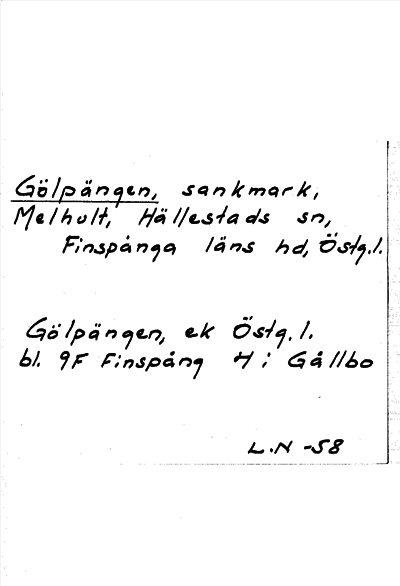 Gölpängen, sankmark,
Melhult, Hällestads sn,
Finspånga läns hd, Östg.l.
Gölpängen, ek Östg.l.
bl. 9F Finspång H i Gållbo
L.N -58